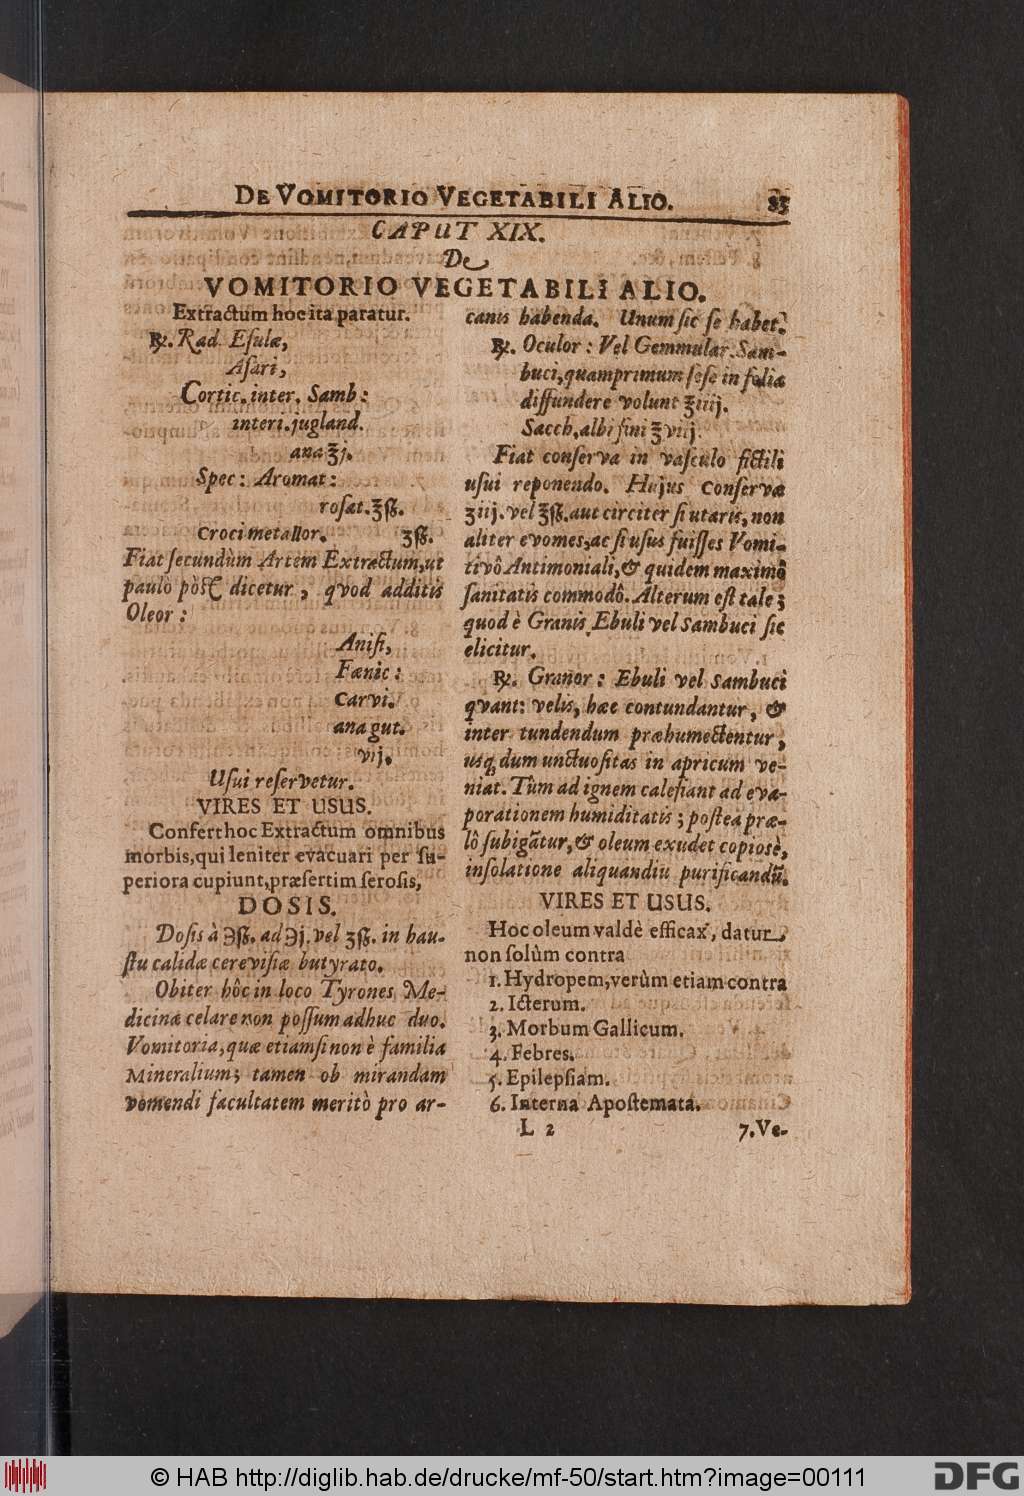 DE VOMITORIO VEGETABILI ALIO. 83
CAPUT XIX.
De
VOMITORIO VEGETABILI ALIO.
Extractum hoc ita paratur.
℞. Rad. Esulæ,
Asari,
Cortic. inter. Samb:
interi. jugland.
ana ʒj.
Spec: Aromat:
rosat. ʒß.
Croci metallor. ʒß.
Fiat secundùm Artem Extractum, ut
paulò pòst dicetur, qvod additis
Oleor:
Anisi,
Fænic:
Carvi.
ana gut.
vij.
Usui reservetur.
VIRES ET USUS.
Confert hoc Extractum omnibus
morbis, qui leniter evacuari per su-
periora cupiunt, præsertim serosis,
DOSIS.
Dosis à ℈ß. ad ℈j. vel ʒß. in hau-
stu calidæ cerevisiæ butyrato.
Obiter hôc in loco Tyrones Me-
dicinæ celare non possum adhuc duo.
Vomitoria, quæ etiamsi non è familia
Mineralium; tamen ob mirandam
vomendi facultatem meritò pro ar-
canis habenda. Unum sic se habet.
℞. Oculor: Vel Gemmular. Sam-
buci, quamprimum sese in folia
diffundere volunt ℥iiij.
Sacch. albi fini ℥viij.
Fiat conserva in vasculo fictili
usui reponendo. Hujus Conservæ
ʒiij. vel ℥ß. aut circiter si utaris, non
aliter evomes, ac si usus fuisses Vomi-
tivô Antimoniali, & quidem maximô
sanitatis commodô. Alterum est tale;
quod è Granis Ebuli vel Sambuci sic
elicitur.
℞. Granor: Ebuli vel Sambuci
qvant: velis, hæc contundantur, &
inter tundendum præhumectentur,
usq; dum unctuositas in apricum ve-
niat. Tùm ad ignem calefiant ad eva-
porationem humiditatis; postea præ-
lô subigãtur, & oleum exudet copiosè,
insolatione aliquandiu purificandũ.
VIRES ET USUS.
Hoc oleum valdè efficax, datur
non solùm contra
1. Hydropem, verùm etiam contra
2. Icterum.
3. Morbum Gallicum.
4. Febres.
5. Epilepsiam.
6. Interna Apostemata.
L 2 7. Ve-
© HAB http://diglib.hab.de/drucke/mf-50/start.htm?image=00111
DFG